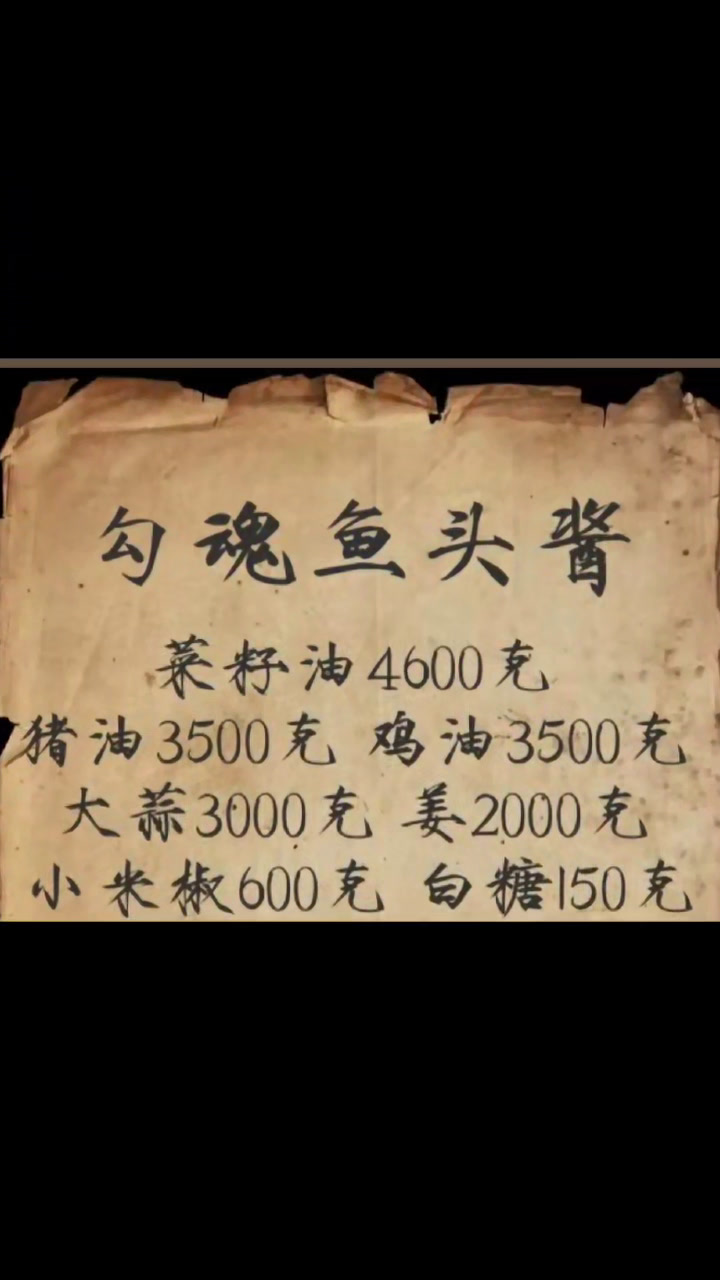 勾魂鱼头酱
菜籽油4600克
猪油3500克 鸡油3500克
大蒜3000克 姜2000克
小米椒600克 白糖150克